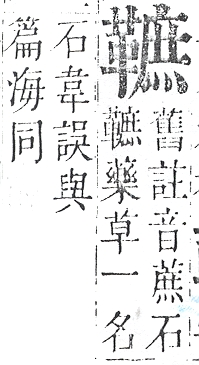 䩾
舊註音蔗石
䩾藥草一名
石韋誤與
篇海同